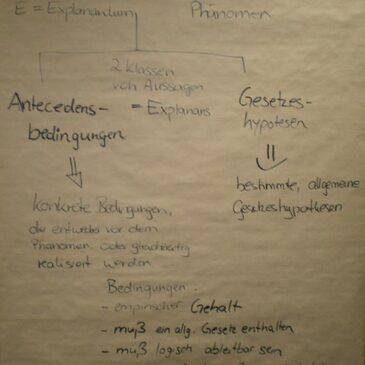 E = Explanandum Phänomen
2 Klassen
von Aussagen
Antecedens- = Explanans Gesetzes-
bedingungen hypotesen
bestimmte, allgemeine
Gesetzeshypothesen
konkrete Bedingungen,
die entweder vor dem
Phänomen oder gleichzeitig
realisiert werden
Bedingungen:
- empirischer Gehalt
- muß ein allg. Gesetz enthalten
- muß logisch ableitbar sein